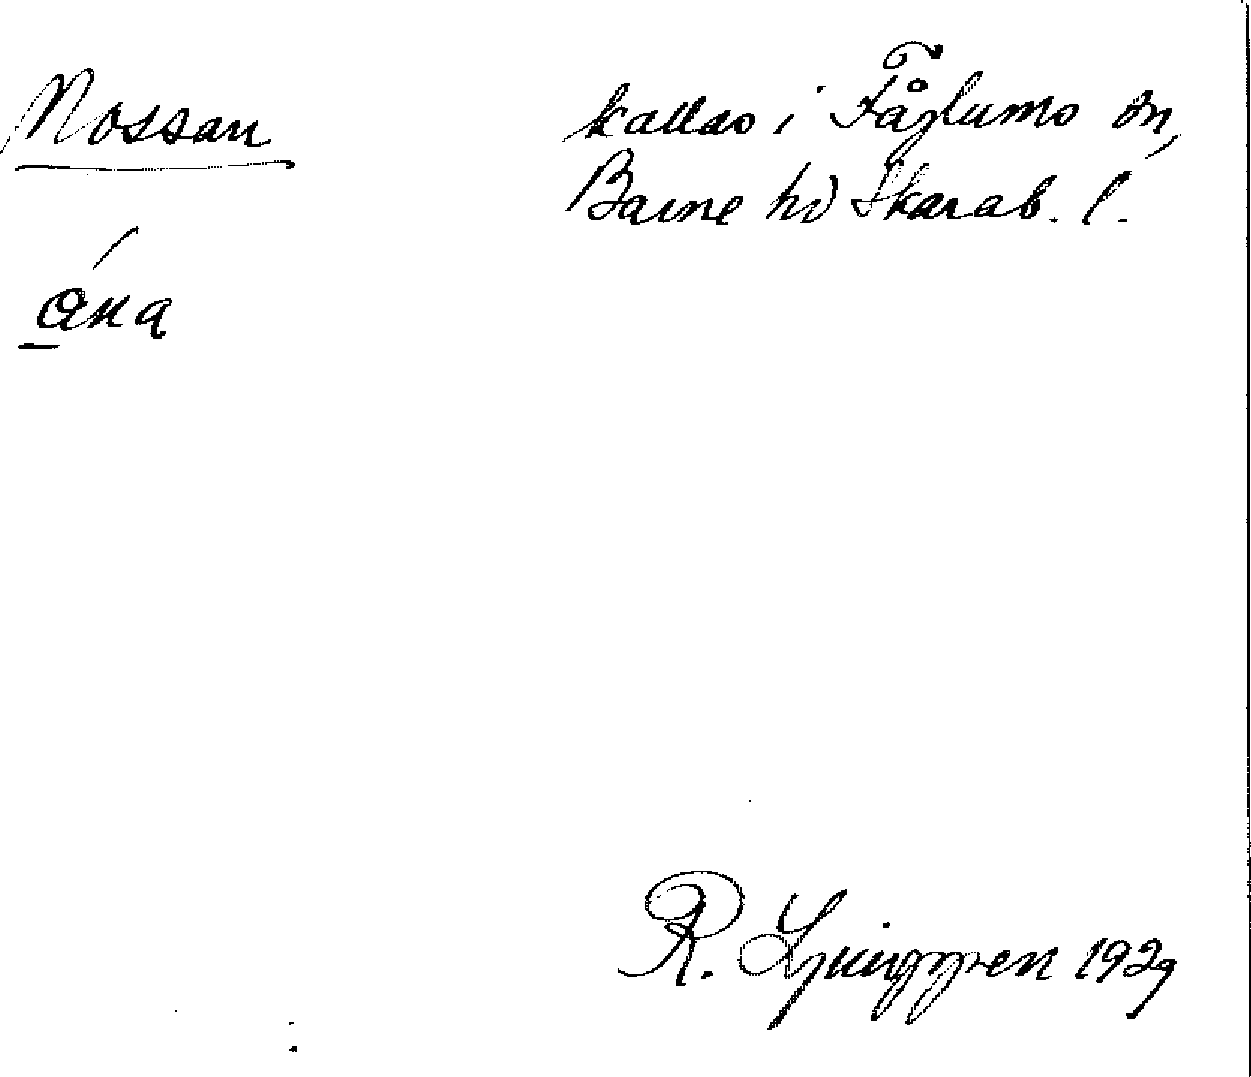 Nossan
kallas i Fåglums sn,
Barne hd Skarab. l.
åna
R. Ljunggren 1929